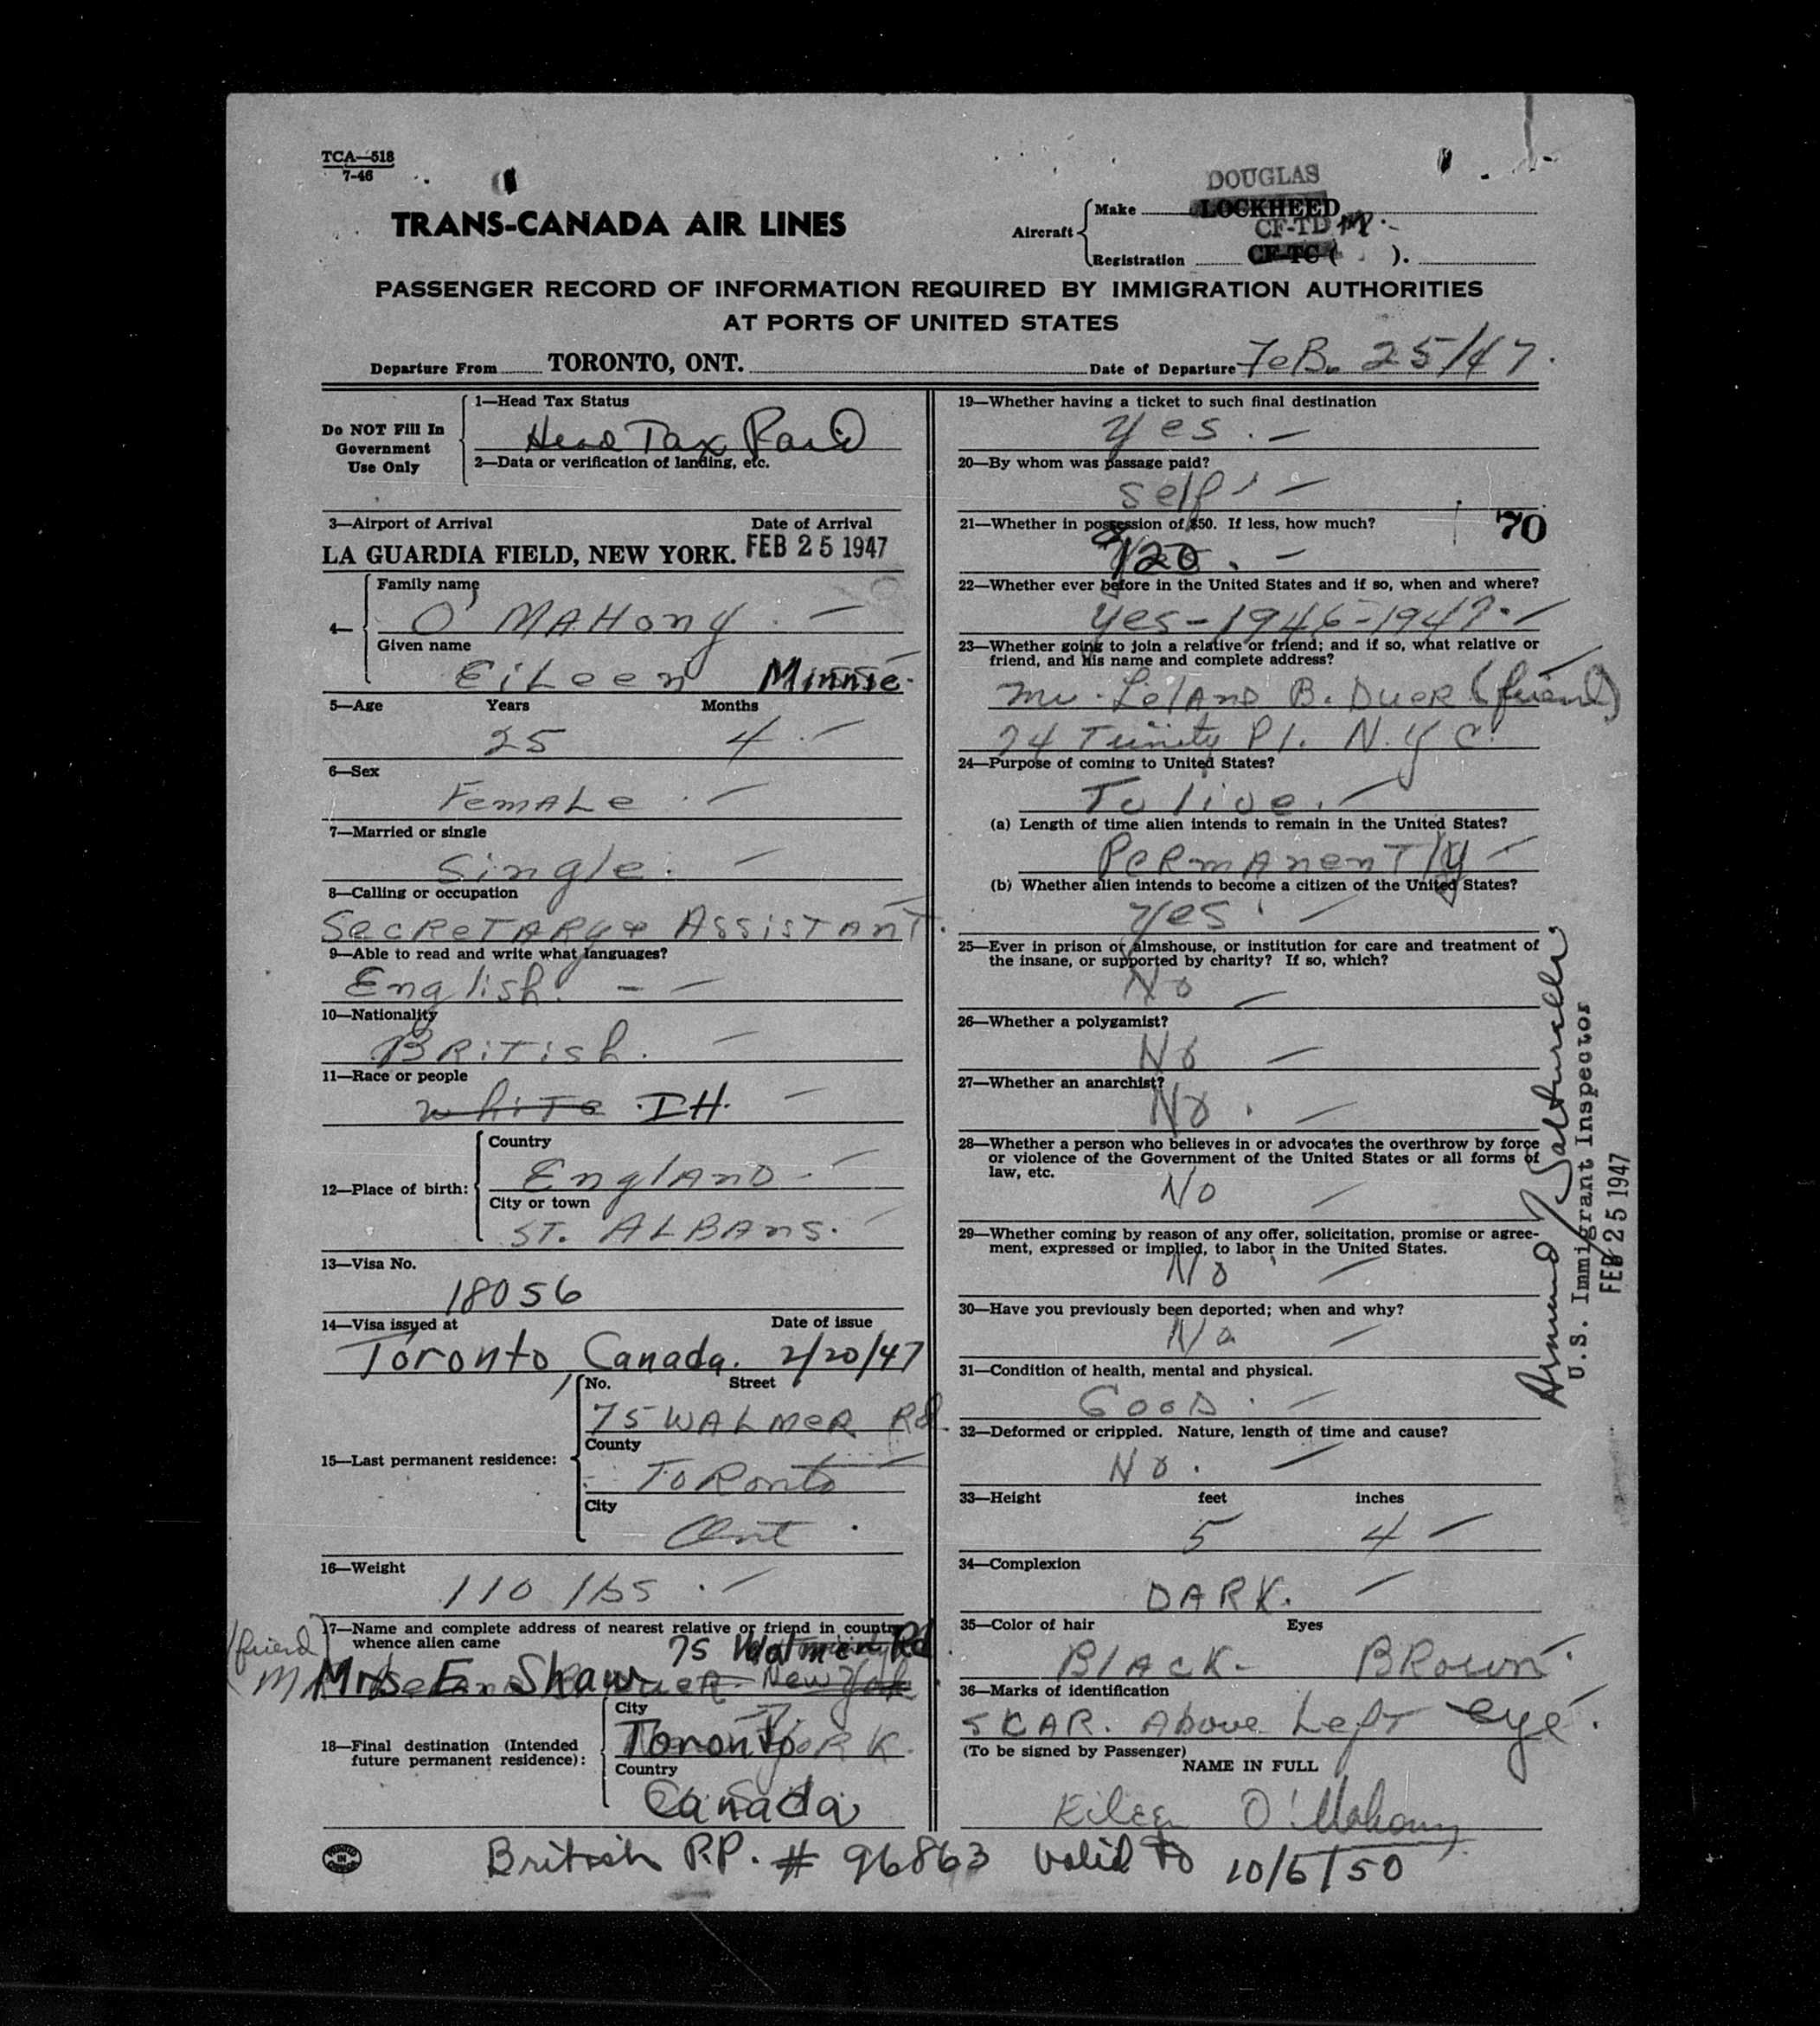 TCA—518
7-46
TRANS-CANADA AIR LINES
DOUGLAS
Aircraft
Make LOCKHEED
CF-TD
Registration CF-TC ( ).
PASSENGER RECORD OF INFORMATION REQUIRED BY IMMIGRATION AUTHORITIES
AT PORTS OF UNITED STATES
Departure From TORONTO, ONT. Date of Departure FeB. 25/47.
Do NOT Fill In
Government
Use Only
1—Head Tax Status
Head Tax Paid
2—Data or verification of landing, etc.
3—Airport of Arrival Date of Arrival
LA GUARDIA FIELD, NEW YORK. FEB 25 1947
4—
Family name
O'MAHony
Given name
EiLeen Minnie
5—Age Years Months
25 4
6—Sex
FemALe
7—Married or single
Single
8—Calling or occupation
SecReTARy & AssisTAnT.
9—Able to read and write what languages?
English.
10—Nationality
BRiTish.
11—Race or people
whiTe I.H.
12—Place of birth:
Country
EnglAnD
City or town
ST. ALBAns.
13—Visa No.
18056
14—Visa issued at Date of issue
Toronto Canada. 2/20/47
15—Last permanent residence:
No. Street
75 WALmeR Rd.
County
ToRonto
City
Ont
16—Weight
110 lbs.
17—Name and complete address of nearest relative or friend in country
whence alien came
(friend)
75 Walmer Rd
Mrs E. Shaw New York
18—Final destination (Intended
future permanent residence):
City
Toronto
Country
Canada
19—Whether having a ticket to such final destination
Yes.
20—By whom was passage paid?
self
21—Whether in possession of $50. If less, how much?
70
120.
22—Whether ever before in the United States and if so, when and where?
Yes-1946-1947.
23—Whether going to join a relative or friend; and if so, what relative or
friend, and his name and complete address?
Mr. LelAnD B. DueR (friend)
74 Trinity Pl. N.Y.C.
24—Purpose of coming to United States?
To live.
(a) Length of time alien intends to remain in the United States?
PeRmAnenTly
(b) Whether alien intends to become a citizen of the United States?
Yes
25—Ever in prison or almshouse, or institution for care and treatment of
the insane, or supported by charity? If so, which?
No
26—Whether a polygamist?
No
27—Whether an anarchist?
No.
28—Whether a person who believes in or advocates the overthrow by force
or violence of the Government of the United States or all forms of
law, etc.
No
29—Whether coming by reason of any offer, solicitation, promise or agree-
ment, expressed or implied, to labor in the United States.
No
30—Have you previously been deported; when and why?
No
31—Condition of health, mental and physical.
GooD.
32—Deformed or crippled. Nature, length of time and cause?
No.
33—Height feet inches
5 4
34—Complexion
DARK.
35—Color of hair Eyes
BlAcK- BRown.
36—Marks of identification
SKAR. Above Left eye.
(To be signed by Passenger)
NAME IN FULL
Eileen O'Mahony
U.S. Immigrant Inspector
FEB 25 1947
British P.P. # 96863 valid to 10/5/50